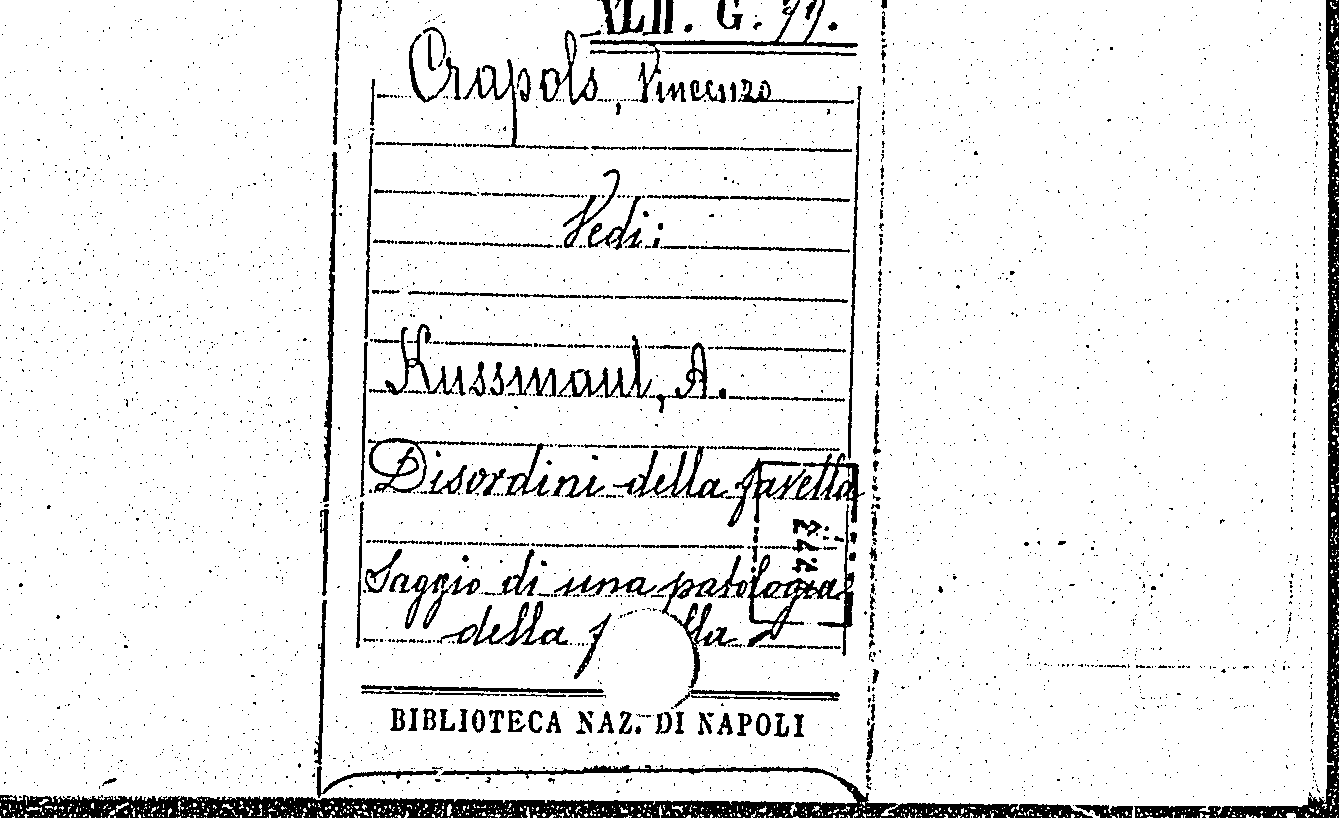 XLII. G. 77.
Crapols, Vincenzo
Vedi:
Kussmaul, A.
Disordini della favella
Saggio di una patologia
della
BIBLIOTECA NAZ. DI NAPOLI